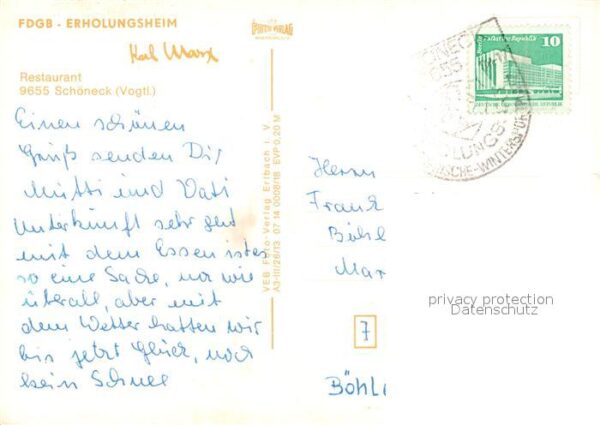 FDGB - ERHOLUNGSHEIM
Karl Marx
Restaurant
9655 Schöneck (Vogtl.)
Einen schönen
Gruß senden Dir
Mutti und Vati
Unterkunft sehr gut
mit dem Essen ist es
so eine Sache, na wie
überall, aber mit
dem Wetter hatten wir
bis jetzt Glück, noch
kein Schnee
VERLAG
VEB Foto-Verlag Erlbach i. V.
A3-III/26/13 07 14 0008/18 EVP 0,20 M
10
Palast der Republik
Herrn
Frank
Böhl
Mar
privacy protection
Datenschutz
7
Böhl